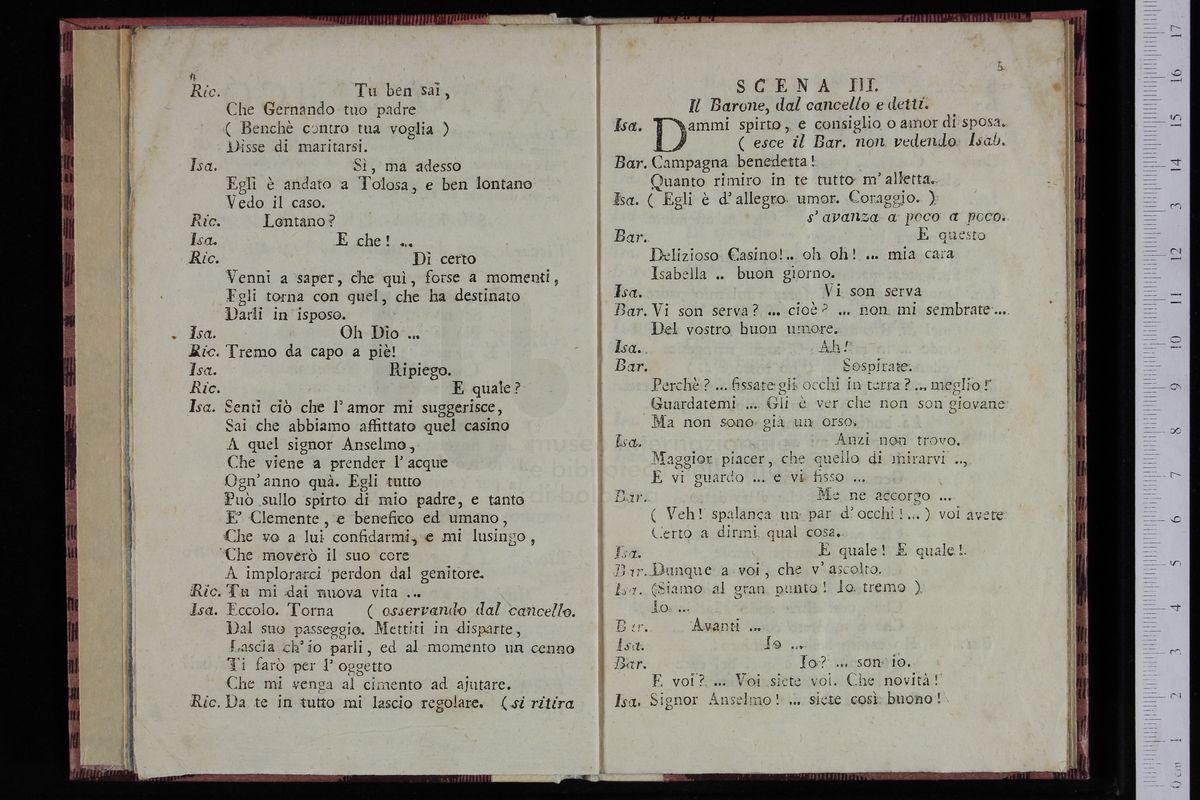 4
Ric. Tu ben sai,
Che Gernando tuo padre
( Benchè contro tua voglia )
Disse di maritarsi.
Isa. Sì, ma adesso
Egli è andato a Tolosa, e ben lontano
Vedo il caso.
Ric. Lontano?
Isa. E che! ...
Ric. Di certo
Venni a saper, che quì, forse a momenti,
Egli torna con quel, che ha destinato
Darli in isposo.
Isa. Oh Dio ...
Ric. Tremo da capo a piè!
Isa. Ripiego.
Ric. E quale?
Isa. Senti ciò che l'amor mi suggerisce,
Sai che abbiamo affittato quel casino
A quel signor Anselmo,
Che viene a prender l'acque
Ogn'anno quà. Egli tutto
Può sullo spirto di mio padre, e tanto
E' Clemente, e benefico ed umano,
Che vo a lui confidarmi, e mi lusingo,
Che moverò il suo core
A implorarci perdon dal genitore.
Ric. Tu mi dai nuova vita ...
Isa. Eccolo. Torna ( osservando dal cancello.
Dal suo passeggio. Mettiti in disparte,
Lascia ch'io parli, ed al momento un cenno
Ti farò per l'oggetto
Che mi venga al cimento ad ajutare.
Ric. Da te in tutto mi lascio regolare. ( si ritira
5
SCENA III.
Il Barone, dal cancello e detti.
Isa. Dammi spirto, e consiglio o amor di sposa.
( esce il Bar. non vedendo Isab.
Bar. Campagna benedetta!
Quanto rimiro in te tutto m'alletta.
Isa. ( Egli è d'allegro umor. Coraggio. )
s'avanza a poco a poco.
Bar. E questo
Delizioso Casino!.. oh oh! ... mia cara
Isabella .. buon giorno.
Isa. Vi son serva
Bar. Vi son serva? ... cioè? ... non mi sembrate ...
Del vostro buon umore.
Isa. Ah!
Bar. Sospirate.
Perchè? ... fissate gli occhi in terra? ... meglio!
Guardatemi ... Gli è ver che non son giovane
Ma non sono già un orso.
Isa. Anzi non trovo.
Maggior piacer, che quello di mirarvi ..,
E vi guardo ... e vi fisso ...
Bar. Me ne accorgo ...
( Veh! spalanca un par d'occhi!...) voi avete
Certo a dirmi qual cosa.
Isa. E quale! E quale!
Bar. Dunque a voi, che v'ascolto.
Isa. (Siamo al gran punto! Io tremo )
Io ...
Bar. Avanti ...
Isa. Io ...
Bar. Io? ... son io.
E voi? ... Voi siete voi. Che novità!
Isa. Signor Anselmo! ... siete così buono!